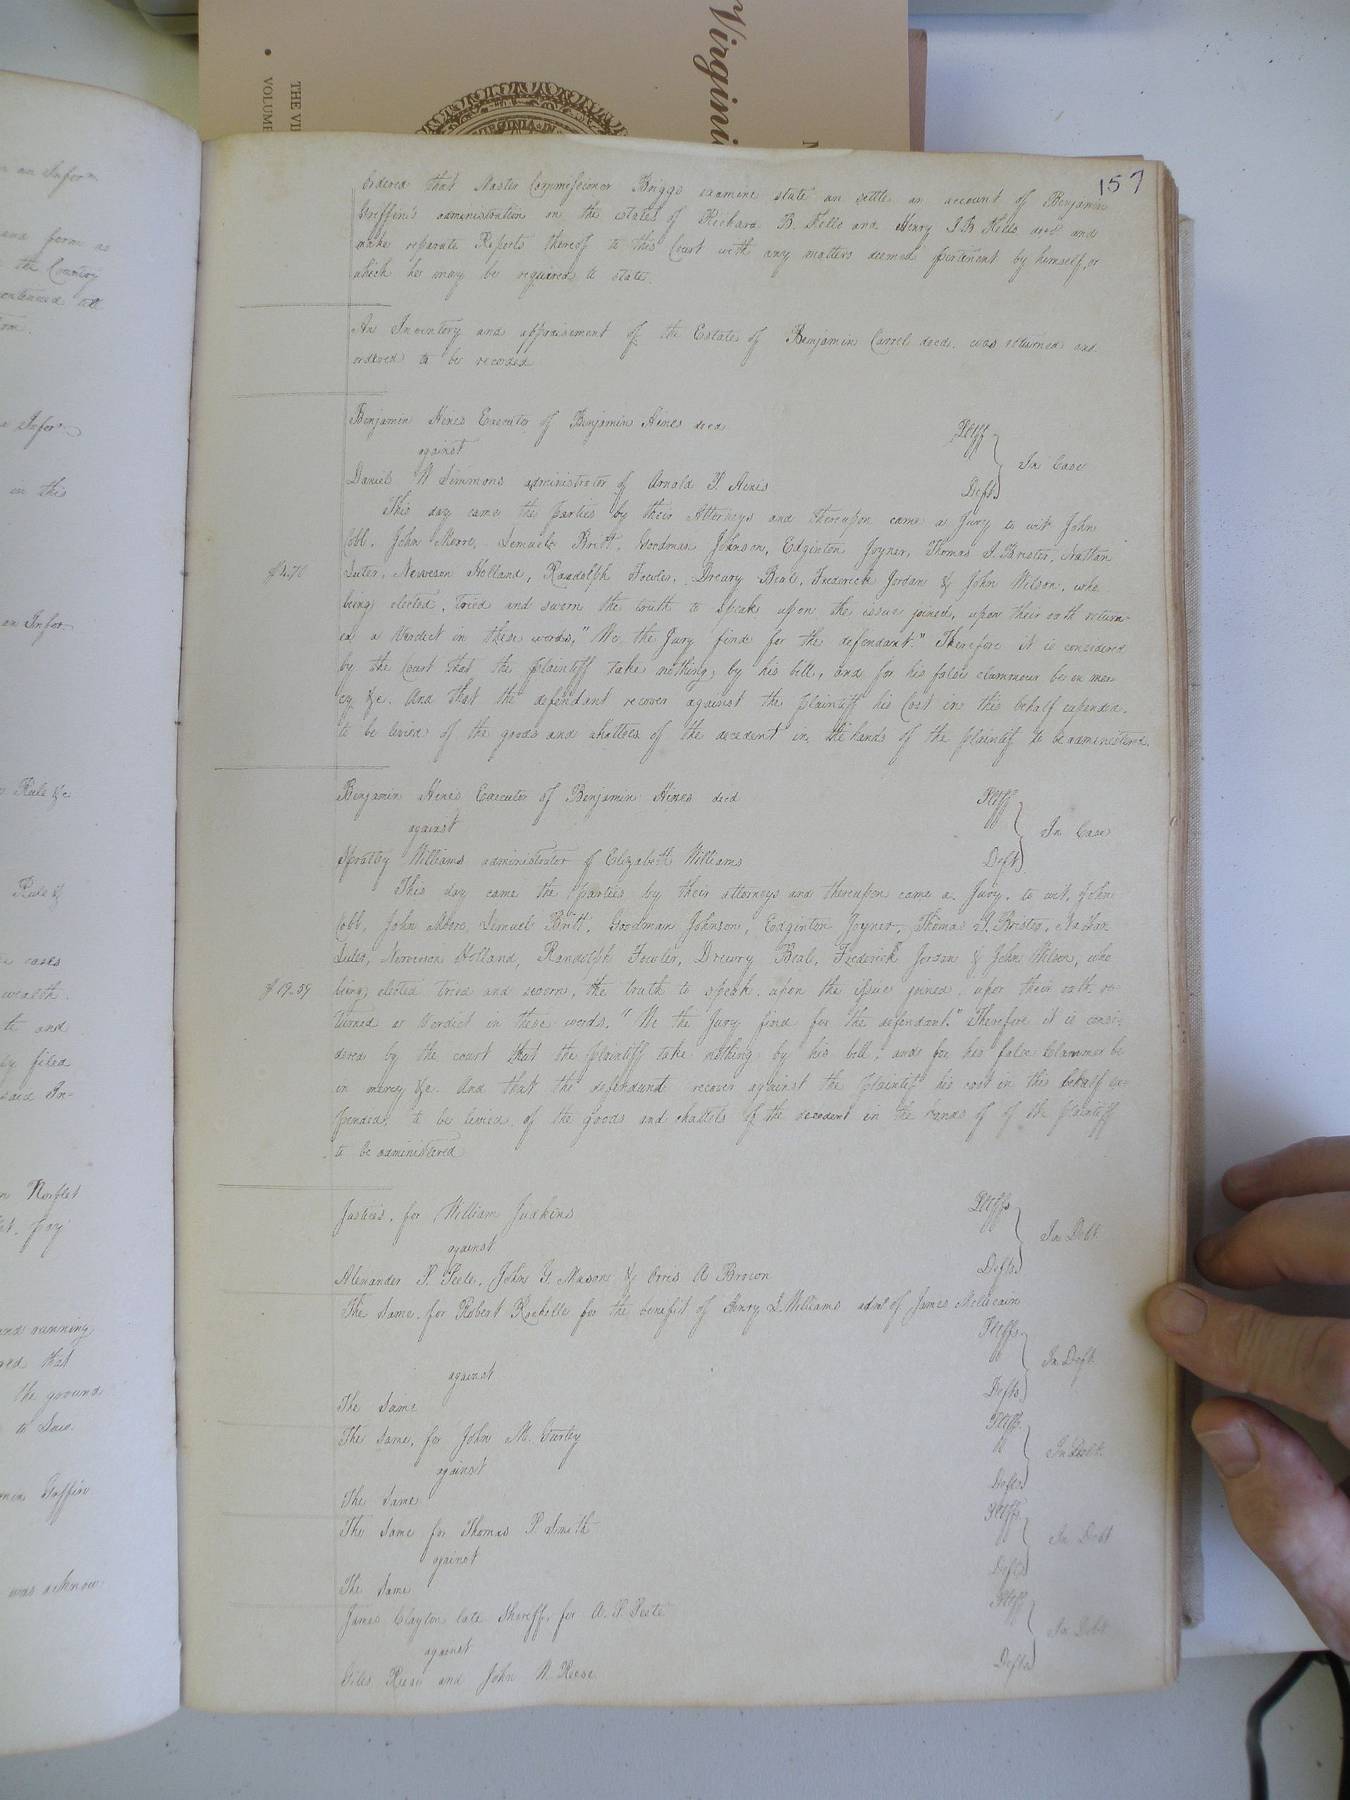 Virgini
THE VI
VOLUME
VIRGINIA IN
157
Ordered that Master Commissioner Briggs examine state an settle an account of Benjamin
Griffin's administration on the estates of Richard B. Kello and Henry S B Kello decd and
make separate Reports thereof to this Court with any matters deemed pertinent by himself, or
which he may be required to state.
An Inventory and appraisement of the Estate of Benjamin Carrel decd. was returned and
ordered to be recorded
Benjamin Hines Executor of Benjamin Hines decd Pltff
against In Case
Daniel W Simmons administrator of Arnold P. Hines Deft
This day came the parties by their Attorneys and thereupon came a Jury to wit John
Cobb, John Moore, Lemuel Britt, Goodman Johnson, Edginton Joyner, Thomas J. Brister, Nathan
Luter, Newsom Holland, Randolph Fowler, Drewry Beal, Frederick Jordan & John Wilson, who
being elected, tried and sworn the truth to speak upon the issue joined, upon their oath return=
ed a Verdict in these words, "We the Jury find for the defendant." Therefore it is considered
by the Court that the plaintiff take nothing by his bill, and for his false clammour be in mer
cy &c. And that the defendant recover against the plaintiff his Cost in this behalf expended.
to be levied of the goods and chattles of the decedent in the hands of the plaintiff to be administered.
Benjamin Hines Executor of Benjamin Hines decd Pltff
against In Case
Spratley Williams administrator of Elizabeth Williams Deft
This day came the parties by their attorneys and thereupon came a Jury, to wit, John
Cobb, John Moore, Lemuel Britt, Goodman Johnson, Edginton Joyner, Thomas J. Brister, Nathan
Luter, Newsom Holland, Randolph Fowler, Drewry Beal, Frederick Jordan & John Wilson, who
$19.59 being elected tried and sworn, the truth to speak upon the issue joined, upon their oath re
turned a Verdict in these words, "We the Jury find for the defendant." Therefore it is consi=
dered by the court that the plaintiff take nothing by his bill; and for his false Clammer be
in mercy &c. And that the defendant recover against the plaintiff his cost in this behalf ex=
pended, to be levied of the goods and chattels of the decedent in the hands of of the plaintiff
to be administered
Justices, for William Judkins Pltffs
against In Debt
Alexander P. Peete, John G. Mason & Orris A Brown Defts
The Same, for Robert Rochelle for the benefit of Henry L Williams adm. of James
Pltffs
against In Debt.
The Same Defts
The Same, for John M. Gurley Pltffs
against In Debt.
The Same Defts
The Same for Thomas P. Smith Pltffs
against In Debt
The Same Defts
James Clayton late Sheriff, for A. P. Peete Pltff
against In Debt
Giles Reese and John W. Reese Defts